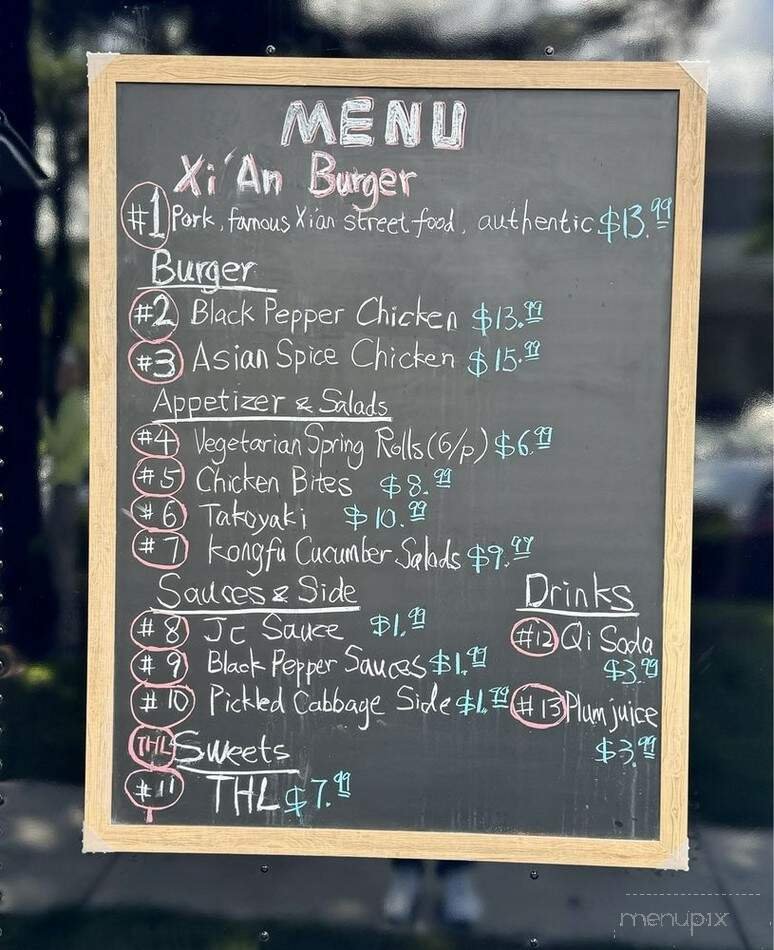 MENU
Xi'An Burger
#1 Pork, famous Xian street food, authentic $13.99
Burger
#2 Black Pepper Chicken $13.99
#3 Asian Spice Chicken $15.99
Appetizer & Salads
#4 Vegetarian Spring Rolls (6/p) $6.99
#5 Chicken Bites $8.99
#6 Takoyaki $10.99
#7 Kongfu Cucumber Salads $9.99
Sauces & Side
#8 Jc Sauce $1.99
#9 Black Pepper Sauces $1.99
#10 Pickled Cabbage Side $1.99
THL Sweets
#11 THL $7.99
Drinks
#12 Qi Soda
$3.99
#13 Plum juice
$3.99
menupix